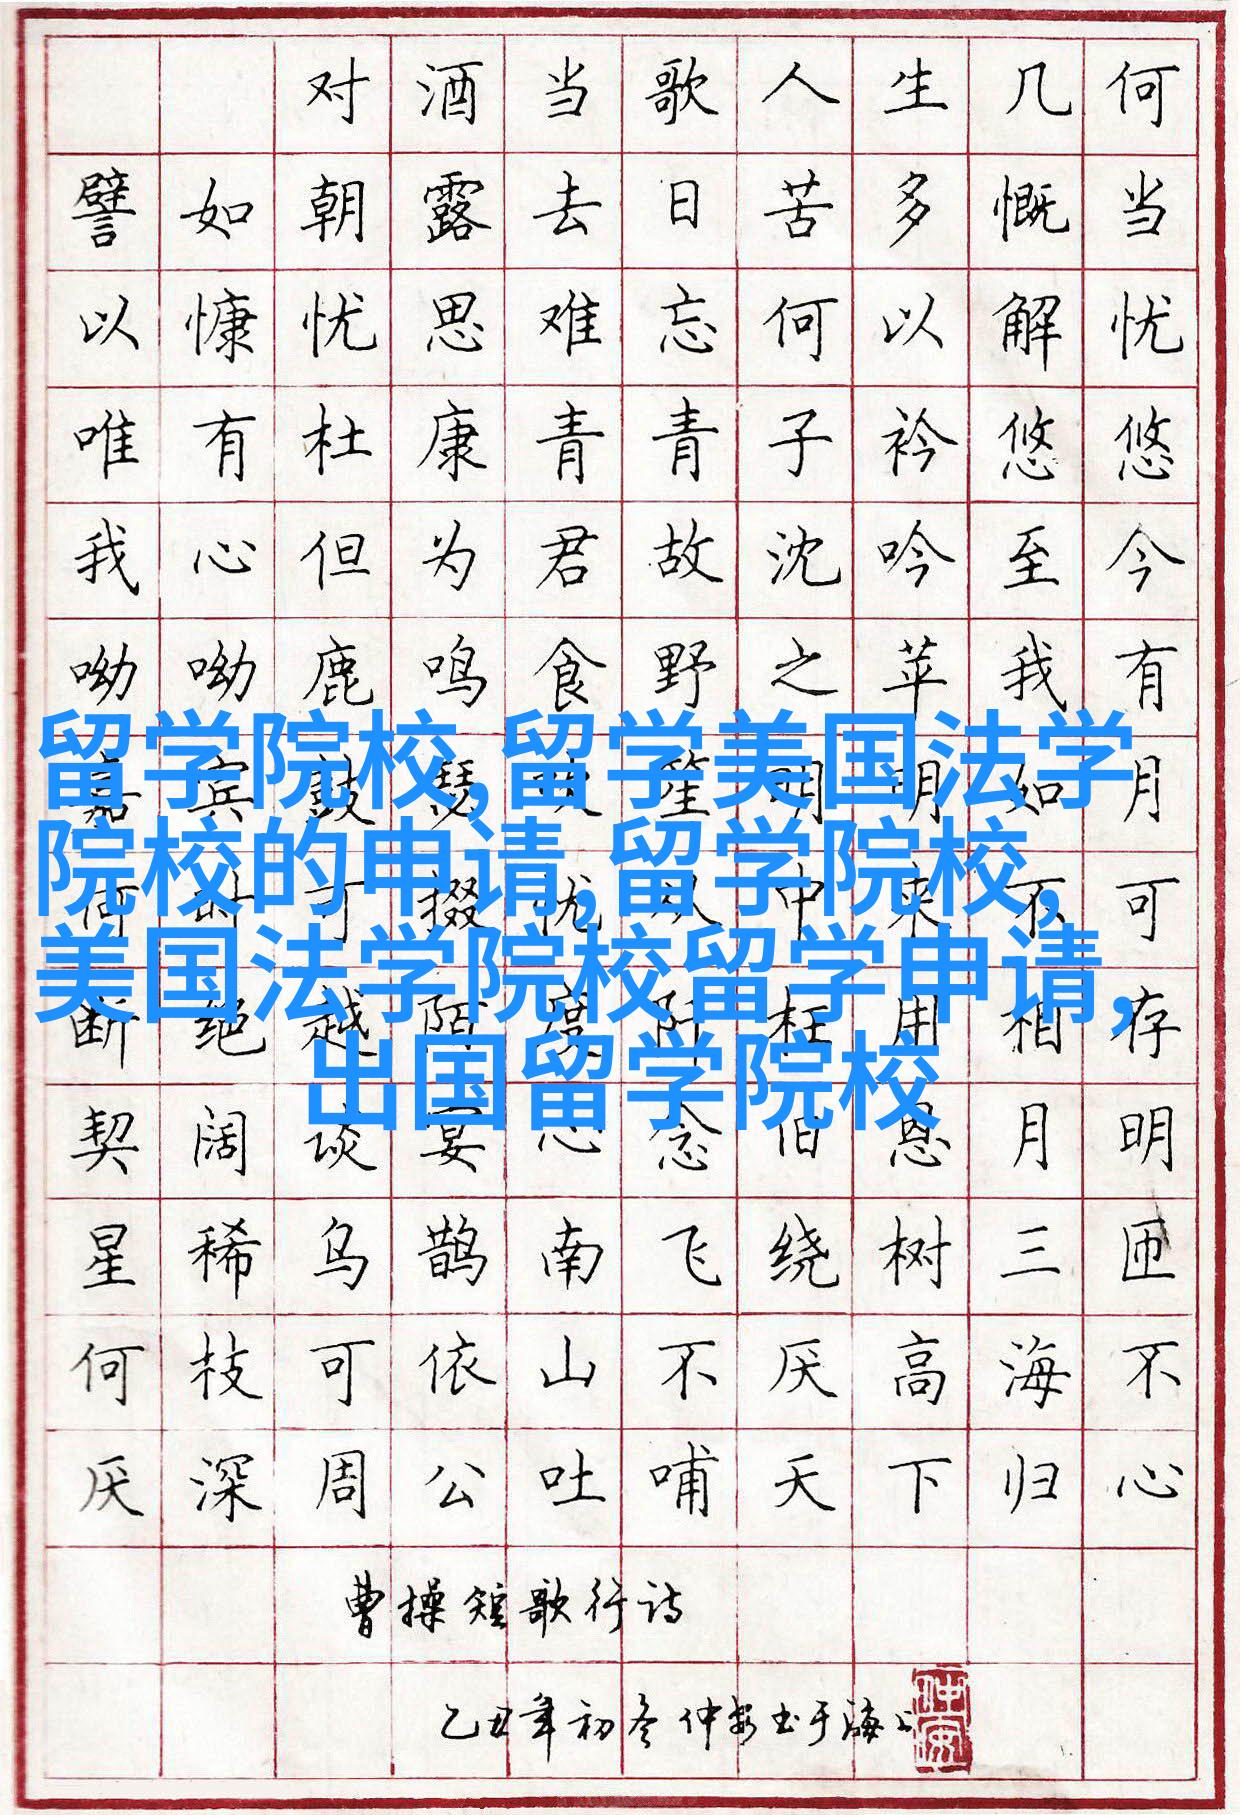 对酒当歌人生几何
譬如朝露去日苦多慨当
以慷忧思难忘何以解忧
唯有杜康青青子衿悠悠
我心但为君故沈吟至今
呦呦鹿鸣食野之苹我有
留学院校,留学美国法学
嘉宾鼓瑟吹笙明明如月
院校的申请,留学院校,
何时可掇忧从中来不可
美国法学院校留学申请,
断绝越陌度阡枉用相存
出国留学院校
契阔谈宴心念旧恩月明
星稀乌鹊南飞绕树三匝
何枝可依山不厌高海不
厌深周公吐哺天下归心
曹操短歌行诗
乙丑年初冬仲安书于海上
仲安